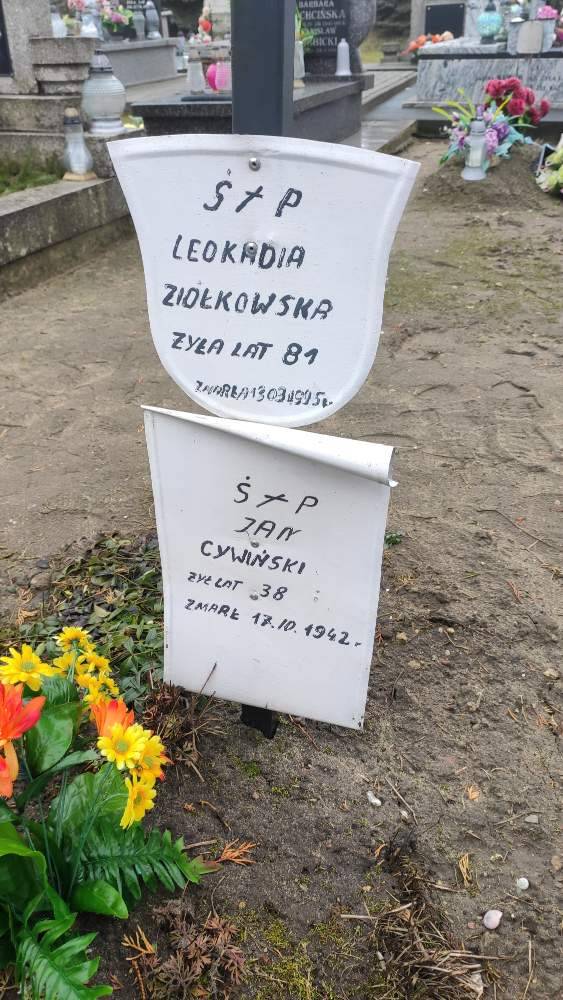 BARBARA
CHCIŃSKA
Ś✝P
LEOKADIA
ZIÓŁKOWSKA
ŻYŁA LAT 81
ZMARŁA 13 03 1995r.
Ś✝P
JAN
CYWIŃSKI
ŻYŁ LAT 38
ZMARŁ 17.10.1942r